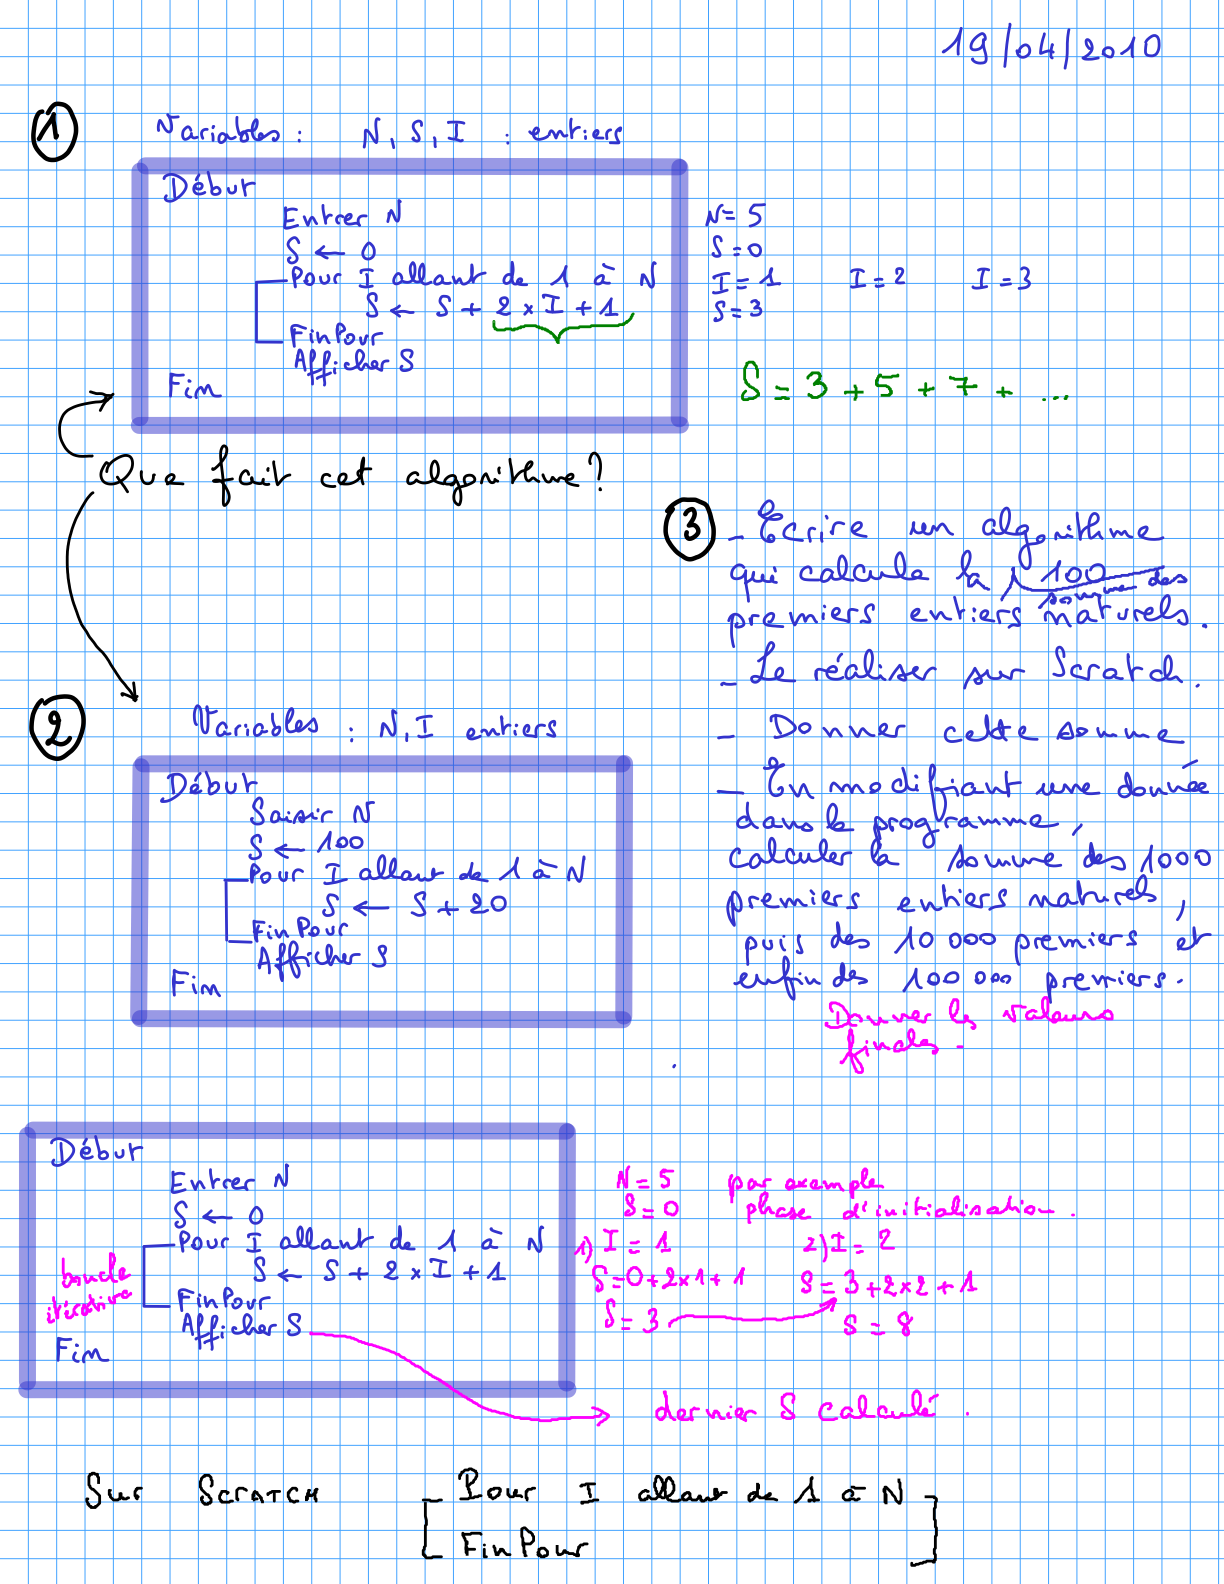 19/04/2010
1
Variables : N, S, I : entiers
Début
Entrer N
S ← 0
Pour I allant de 1 à N
S ← S + 2 × I + 1
FinPour
Afficher S
Fin
N = 5
S = 0
I = 1 I = 2 I = 3
S = 3
S = 3 + 5 + 7 + ...
Que fait cet algorithme ?
2
Variables : N, I entiers
Début
Saisir N
S ← 100
Pour I allant de 1 à N
S ← S + 20
FinPour
Afficher S
Fin
3
- Ecrire un algorithme
qui calcule la somme des 100
premiers entiers naturels.
- Le réaliser sur Scratch.
- Donner cette somme
- En modifiant une donnée
dans le programme,
calculer la somme des 1000
premiers entiers naturels,
puis des 10 000 premiers et
enfin des 100 000 premiers.
Donner les valeurs
finales -
Début
Entrer N
S ← 0
Pour I allant de 1 à N
S ← S + 2 × I + 1
FinPour
Afficher S
Fin
boucle
itérative
N = 5 par exemple
S = 0 phase d'initialisation.
1) I = 1 2) I = 2
S = 0 + 2 × 1 + 1 S = 3 + 2 × 2 + 1
S = 3 S = 8
dernier S calculé.
Sur SCRATCH
Pour I allant de 1 à N
FinPour